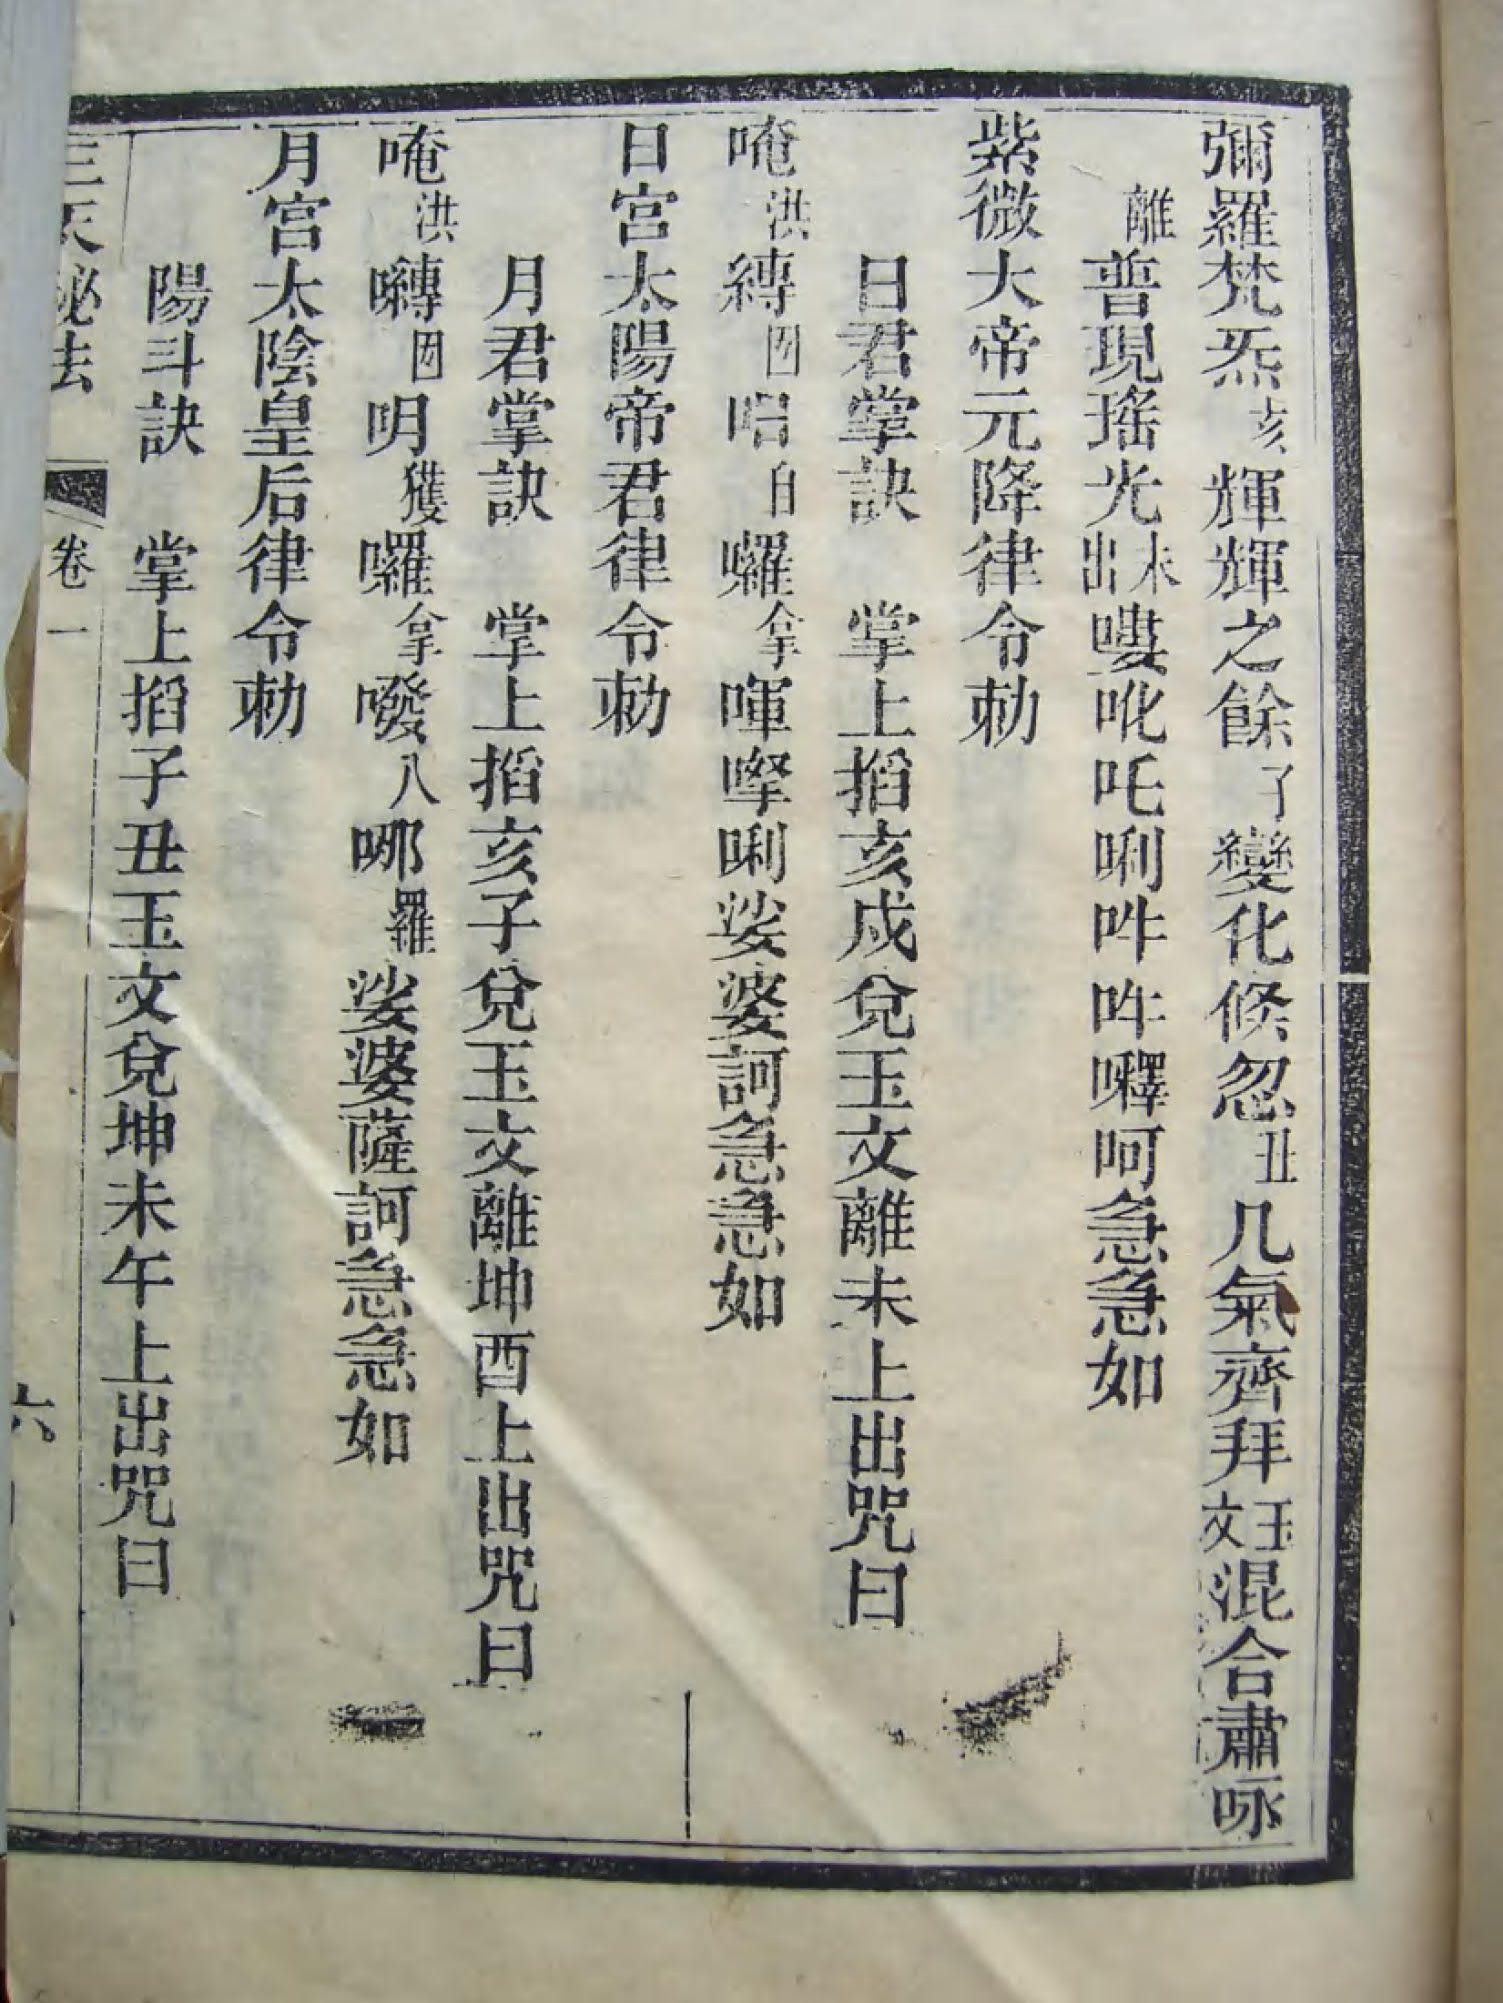 彌羅梵炁亥輝輝之餘了變化倏忽丑几氣齊拜玉文混合肅咏
離普現瑤光未出嘍吪吒唎吽吽㘁呵急急如
紫微大帝元降律令勅
日君掌訣　掌上搯亥戌兌玉文離未上出咒曰
唵洪縛囡唱白囉拿喗㗧唎娑婆訶急急如
日宮太陽帝君律令勅
月君掌訣　掌上搯亥子兌玉文離坤酉上出咒曰
唵洪囀囡明獲囉拿㗶八哪羅娑婆薩訶急急如
月宮太陰皇后律令勅
陽斗訣　掌上搯子丑玉文兌坤未午上出咒曰
三天秘法　卷一　六